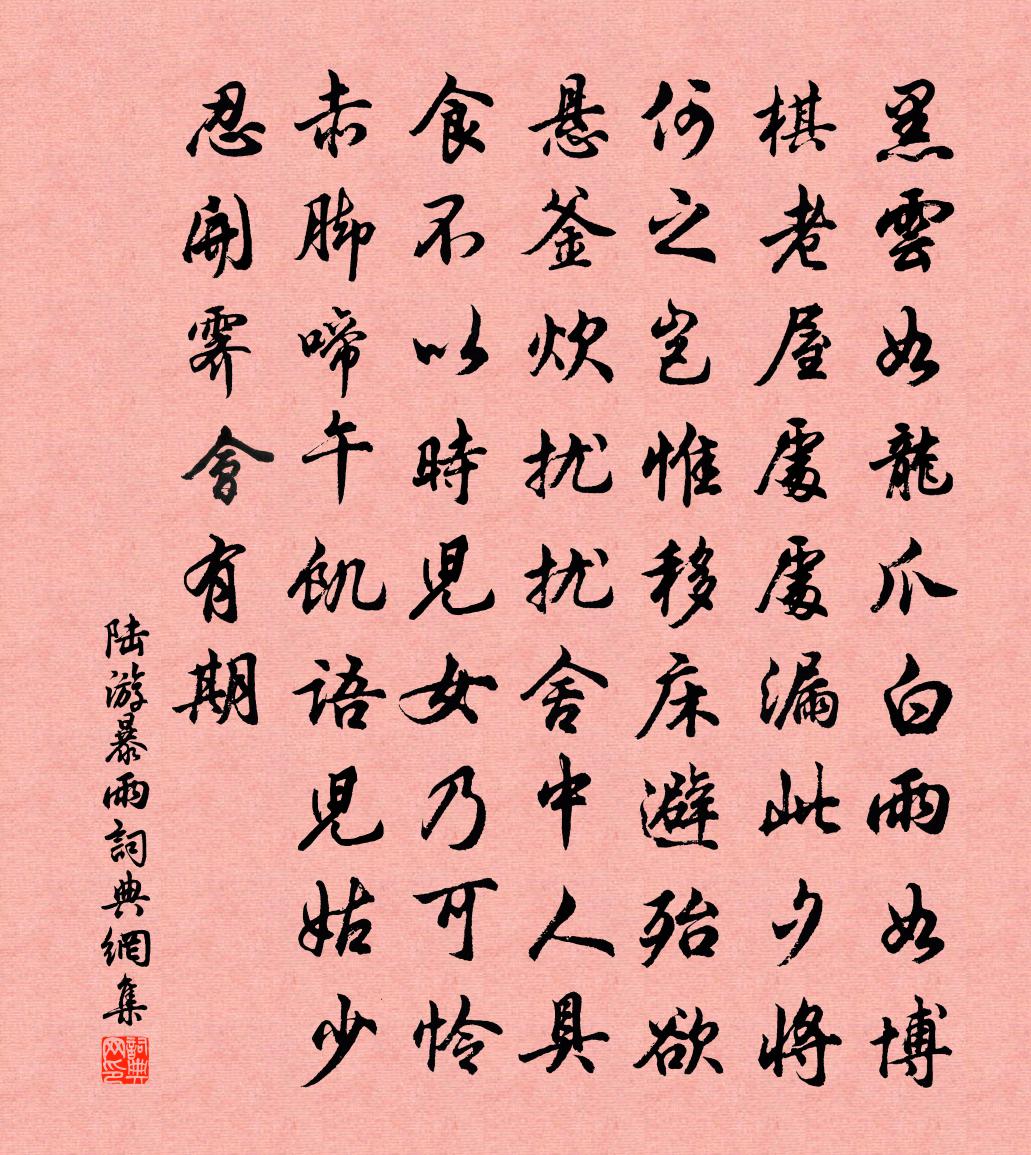 黑雲如龍爪白雨如博
棋老屋處處漏此夕將
何之豈惟移床避殆欲
懸釜炊扰扰舍中人具
食不以時兒女乃可怜
赤脚啼午飢語兒姑少
忍開霽會有期
陆游暴雨詞典網集
詞典网印